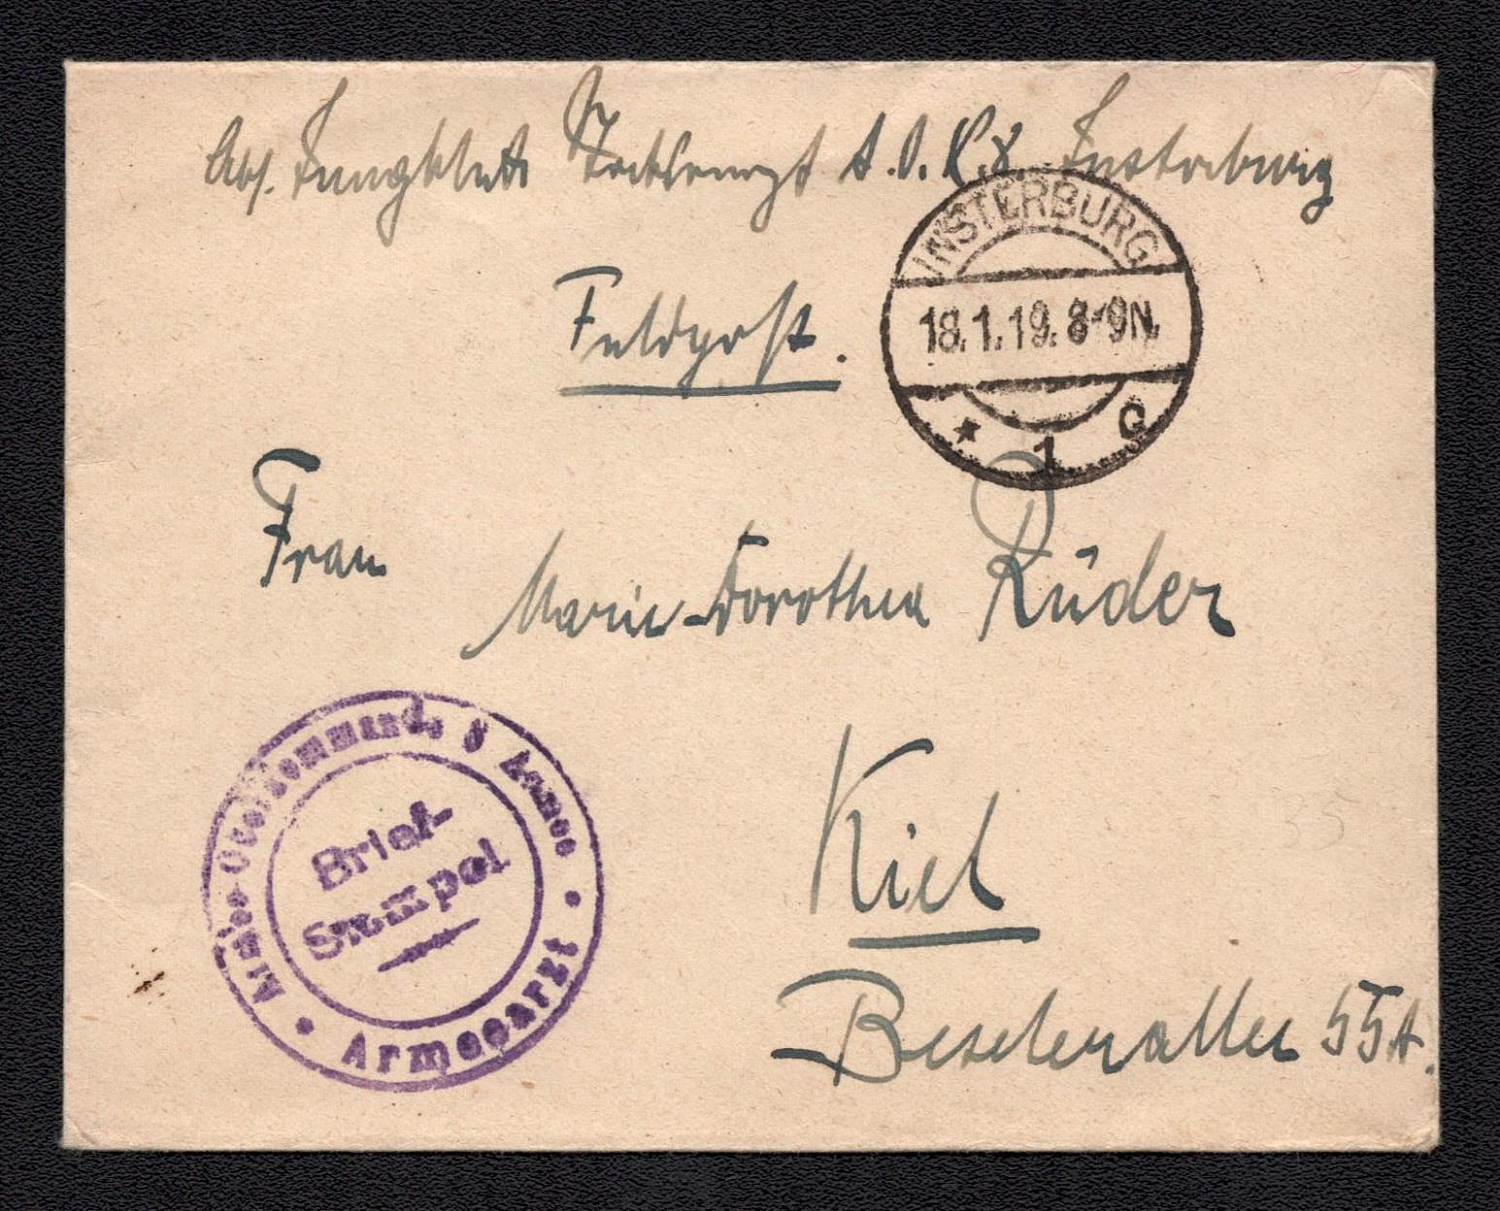 Abs. Jungblut Stabsarzt A.O.K. 8. Insterburg
INSTERBURG
18.1.19. 8-9N.
* 1 c
Feldpost.
Frau
Marie-Dorothea Rüder
Armee-Oberkommando 8 Armee
Brief-
Stempel
• Armeearzt •
Kiel
Beselerallee 55A.